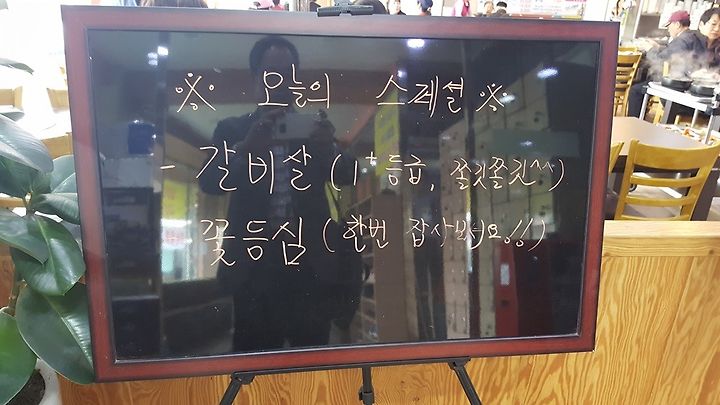 ※ 오늘의 스페셜 ※
- 갈비살 (1+등급, 쫄깃쫄깃^^)
꽃등심 (한번 잡사봐요!!)